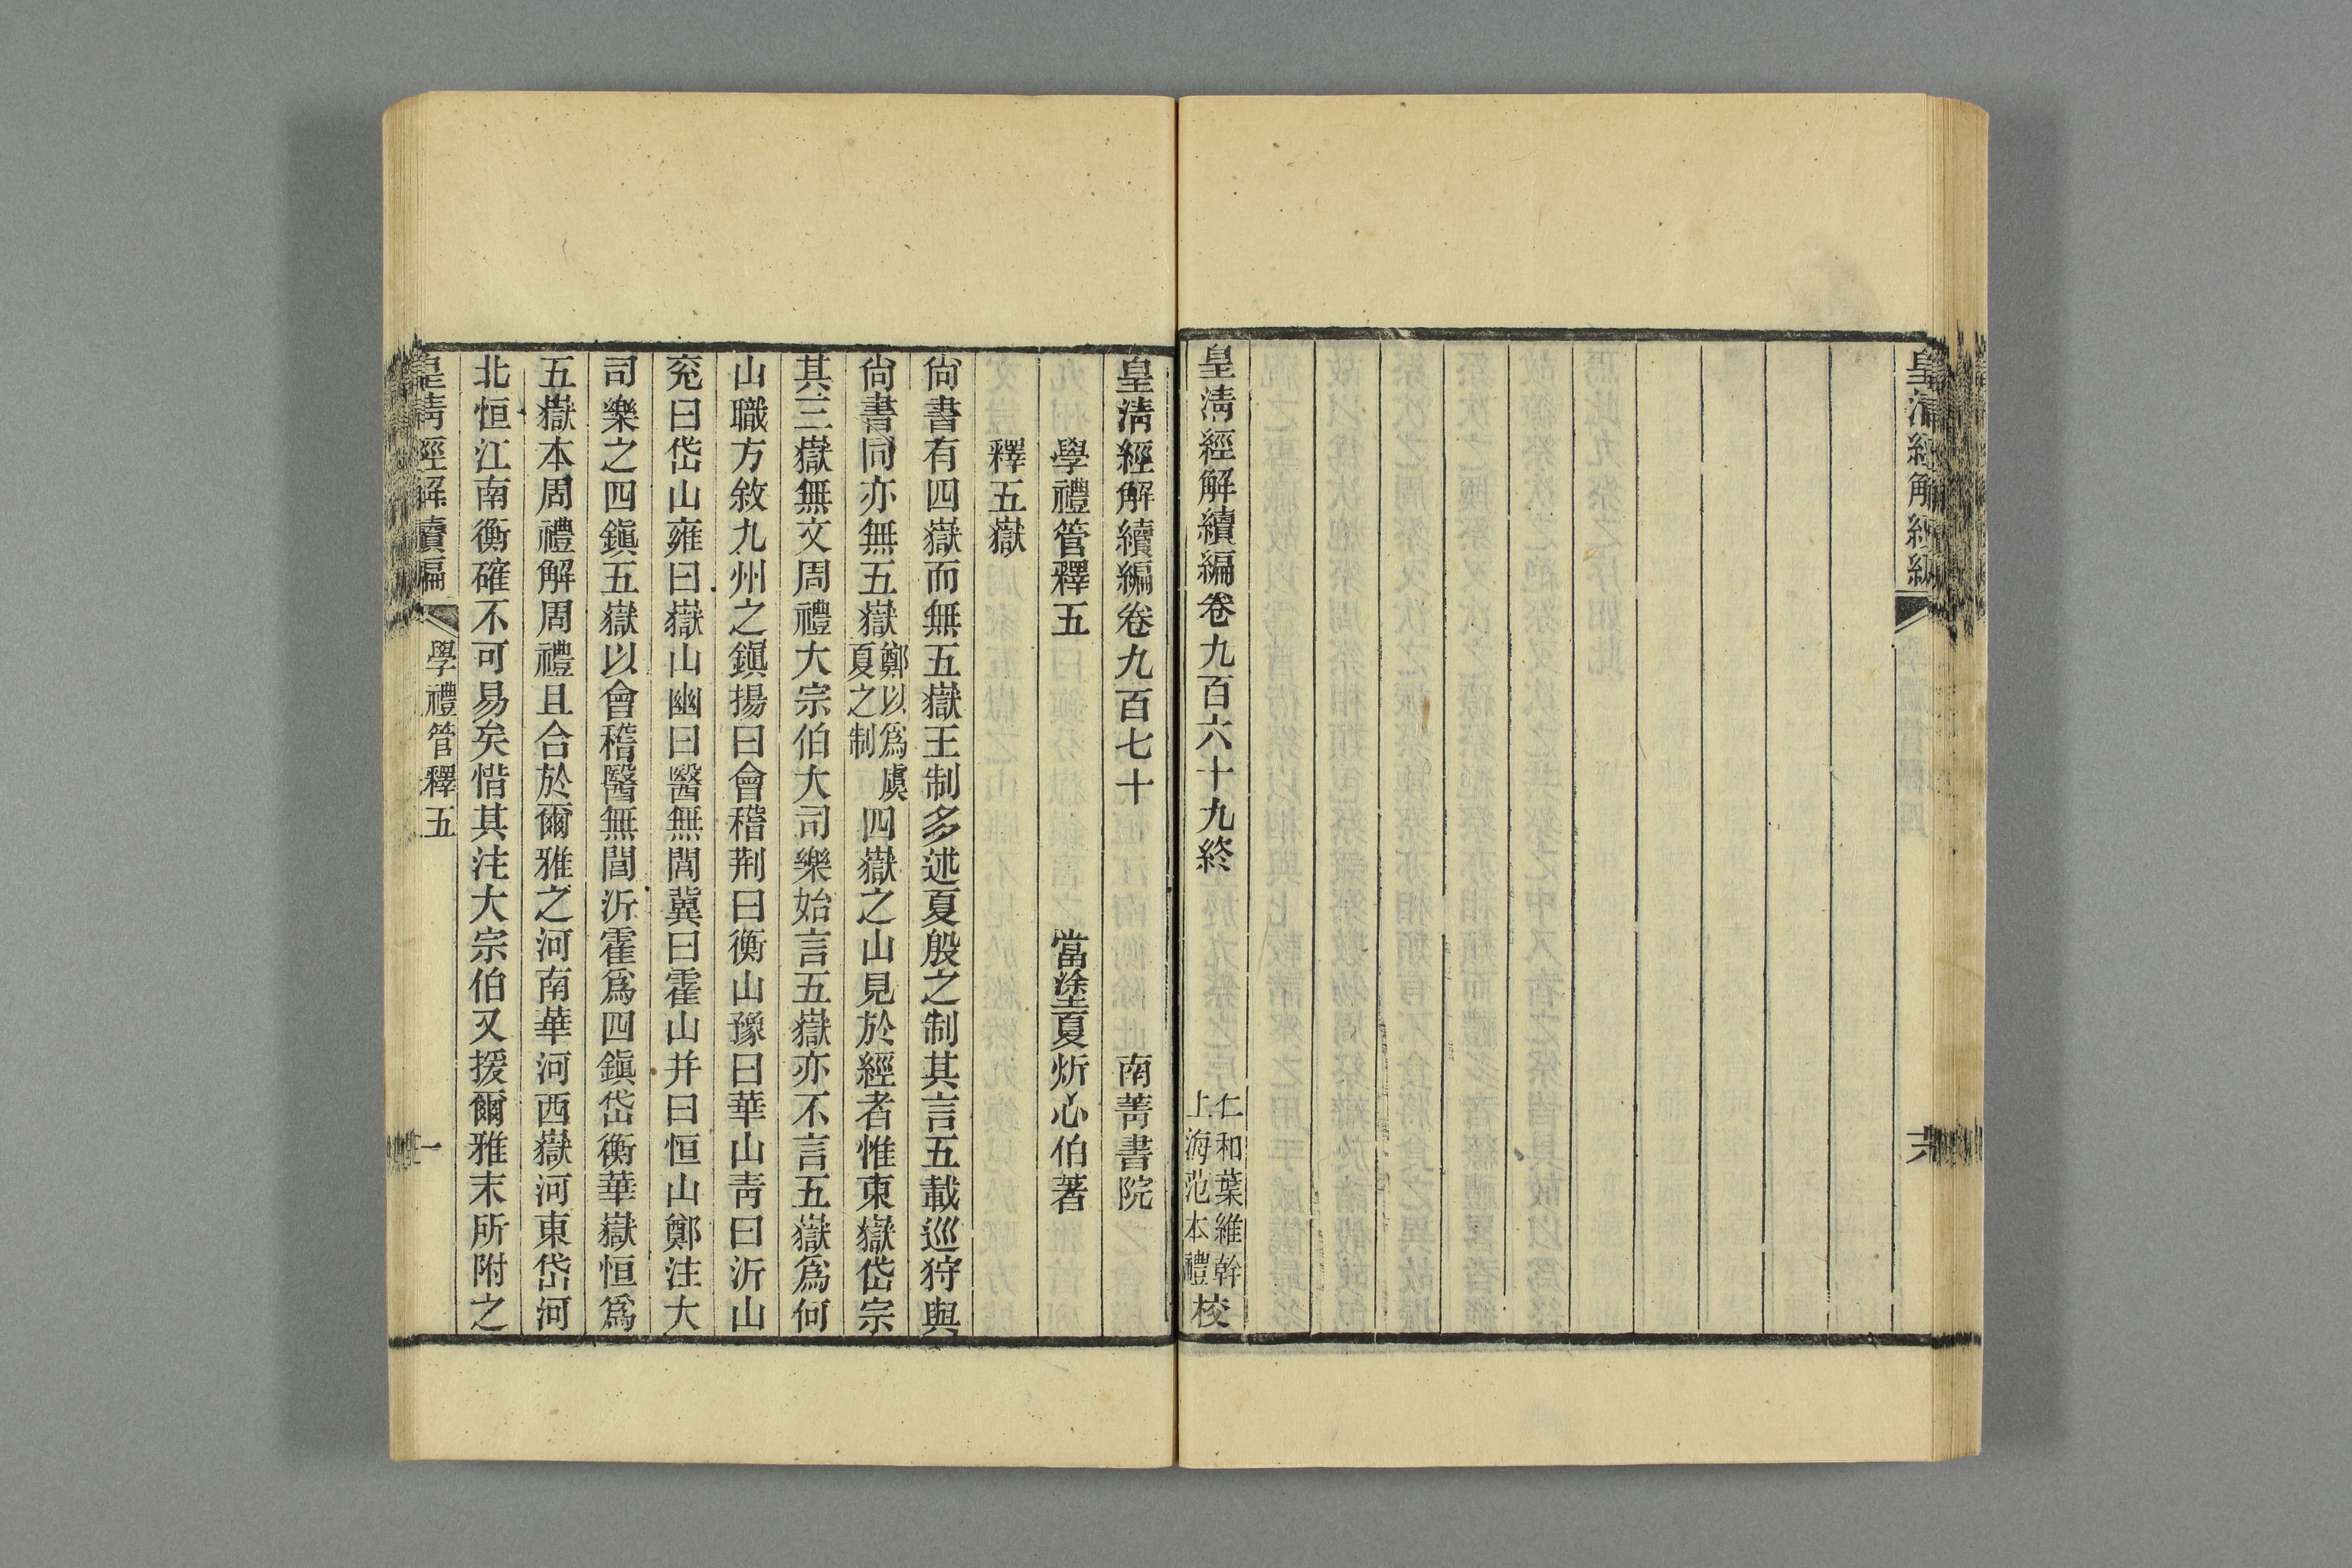 皇清經解續編
六
皇清經解續編卷九百六十九終
仁和葉維幹
上海范本禮校
皇清經解續編卷九百七十
南菁書院
學禮管釋五
當塗夏炘心伯著
釋五嶽
尙書有四嶽而無五嶽王制多述夏殷之制其言五載巡狩與
尙書同亦無五嶽鄭以爲虞夏之制四嶽之山見於經者惟東嶽岱宗
其三嶽無文周禮大宗伯大司樂始言五嶽亦不言五嶽爲何
山職方敘九州之鎭揚曰會稽荆曰衡山豫曰華山靑曰沂山
兖曰岱山雍曰嶽山幽曰醫無閭冀曰霍山并曰恒山鄭注大
司樂之四鎭五嶽以會稽醫無閭沂霍爲四鎭岱衡華嶽恒爲
五嶽本周禮解周禮且合於爾雅之河南華河西嶽河東岱河
北恒江南衡確不可易矣惜其注大宗伯又援爾雅末所附之
皇清經解續編
學禮管釋五
一